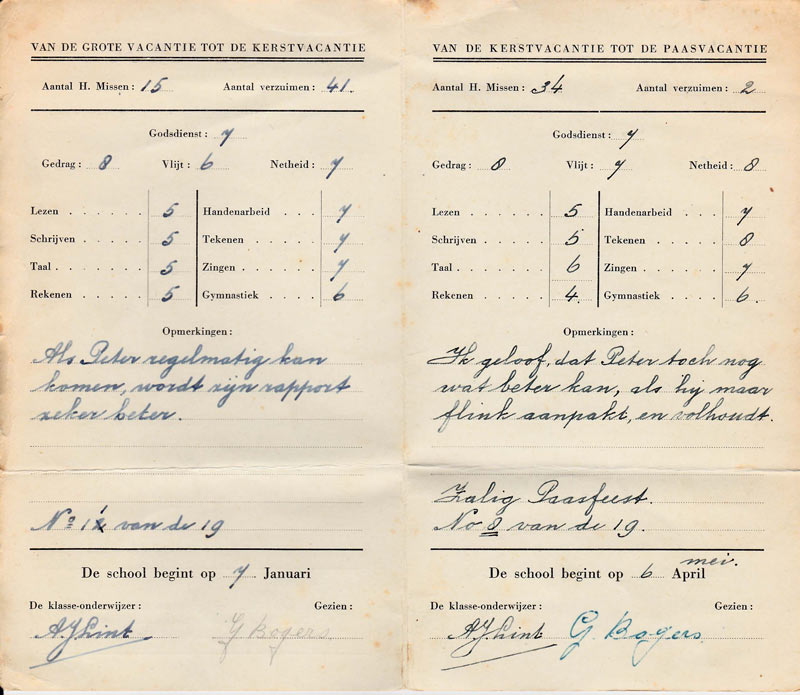 VAN DE GROTE VACANTIE TOT DE KERSTVACANTIE
Aantal H. Missen: 15 Aantal verzuimen: 41.
Godsdienst: 7
Gedrag: 8 Vlijt: 6 Netheid: 7
Lezen . . . . . . 5 Handenarbeid . . . 7
Schrijven . . . . . 5 Tekenen . . . . . 7
Taal . . . . . . . 5 Zingen . . . . . 7
Rekenen . . . . . 5 Gymnastiek . . . . 6
Opmerkingen:
Als Peter regelmatig kan
komen, wordt zijn rapport
zeker beter.
No 1 van de 19
De school begint op 7 Januari
De klasse-onderwijzer: Gezien:
A.J. Lint G Bogers
VAN DE KERSTVACANTIE TOT DE PAASVACANTIE
Aantal H. Missen: 34 Aantal verzuimen: 2
Godsdienst: 7
Gedrag: 8 Vlijt: 7 Netheid: 8
Lezen . . . . . . 5 Handenarbeid . . . 7
Schrijven . . . . . 5 Tekenen . . . . . 8
Taal . . . . . . . 6 Zingen . . . . . 7
Rekenen . . . . . 4. Gymnastiek . . . . 6.
Opmerkingen:
Ik geloof, dat Peter toch nog
wat beter kan, als hij maar
flink aanpakt, en volhoudt.
Zalig Paasfeest.
No 8 van de 19.
mei.
De school begint op 6 April
De klasse-onderwijzer: Gezien:
A.J. Lint G. Bogers